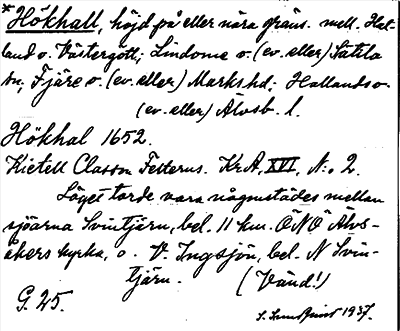 *Hökhall, höjd på eller nära gräns. mell. Hal-
land o. Västergötl.; Lindome o. (ev. eller) Sätila
sn; Fjäre o. (ev. eller) Marks hd; Hallands o.
(ev. eller) Älvsb. l.
Hökhal 1652.
Kietell Classon Felterus. KrA, XVI, N:o 2.
Läget torde vara någonstädes mellan
sjöarna Svintjärn, bel. 11 km. ÖNÖ Älvs-
åkers kyrka, o. V. Ingsjön, bel. N Svin-
tjärn. (Vänd!)
G. 25.
1937.